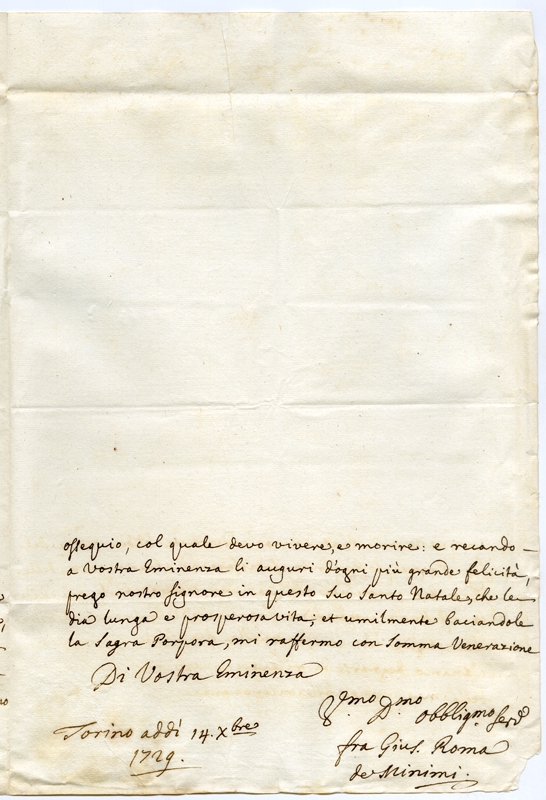 ossequio, col quale devo vivere, e morire: e recando
a Vostra Eminenza li auguri d'ogni più grande felicità,
prego nostro signore in questo Suo Santo Natale, che le
dia lunga e prosperosa vita; et umilmente baciandole
la Sagra Porpora, mi raffermo con Somma Venerazione
Di Vostra Eminenza
Dmo obbligmo Serv
Torino addì 14. Xbre
fra Gius. Roma
1729.
de Minimi.